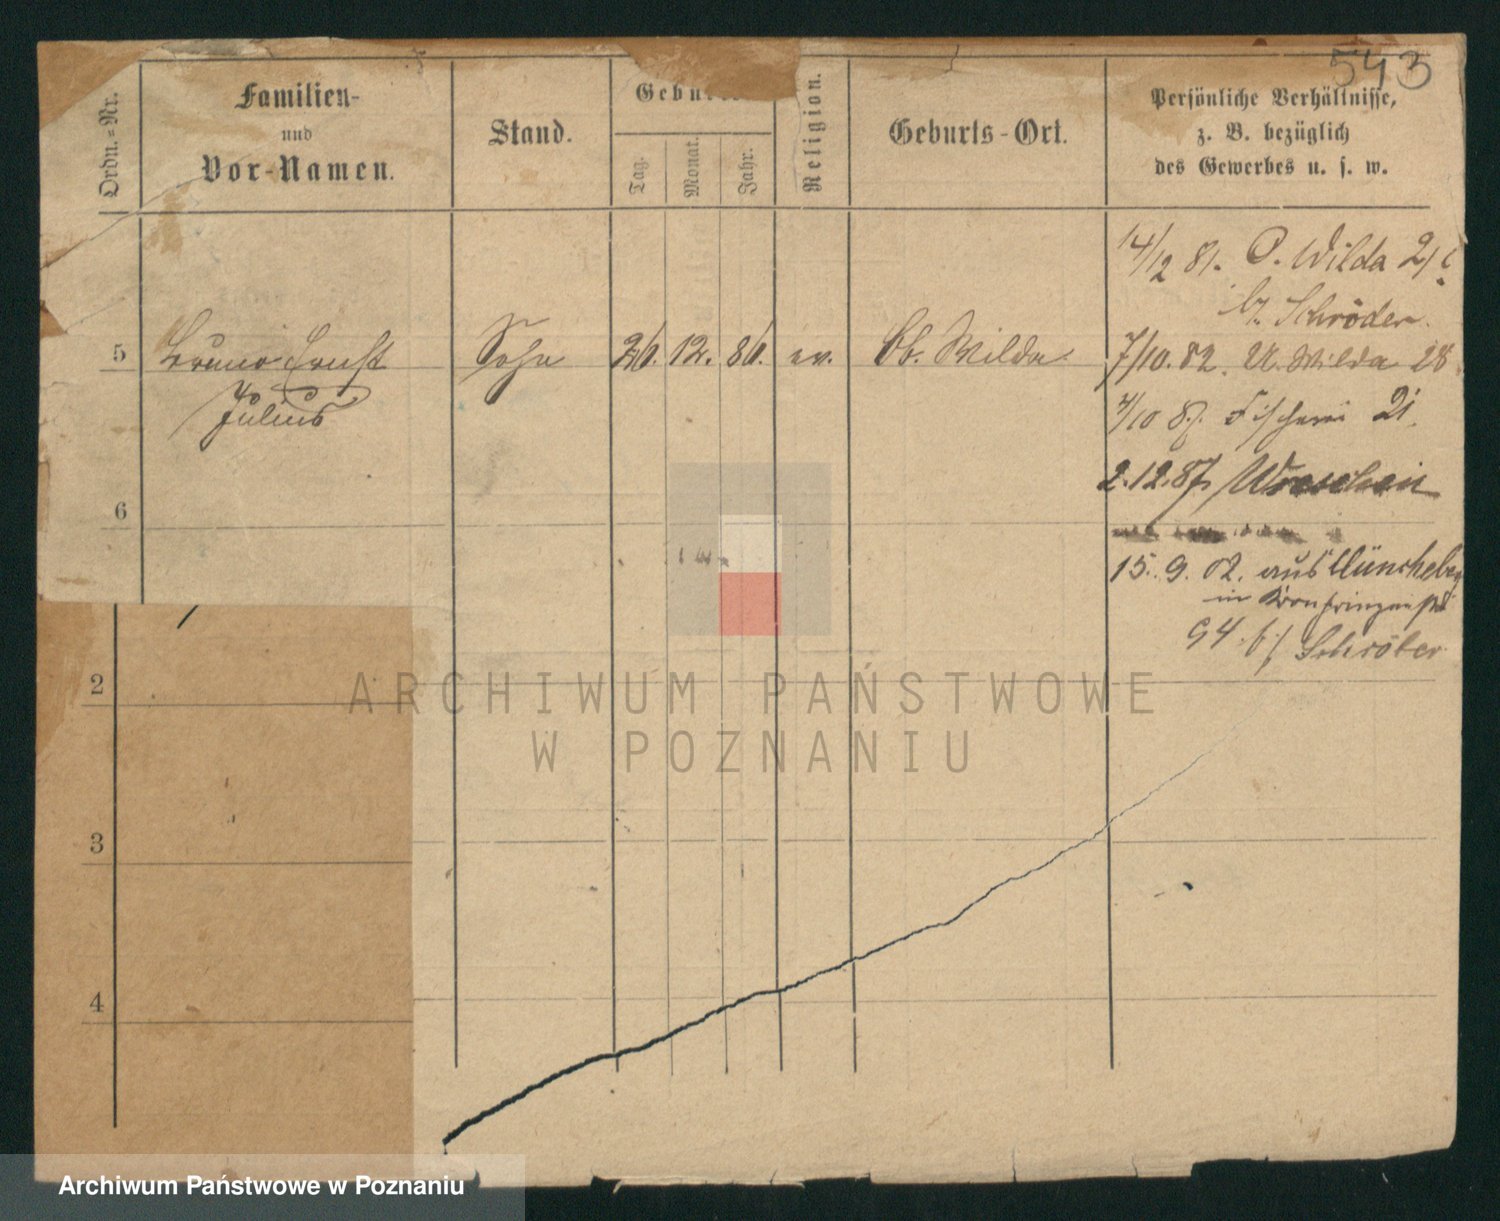 543
Ordn.-Nr.
Familien-
und
Vor-Namen.
Stand.
Tag.
Monat.
Jahr.
Religion.
Geburts-Ort.
Persönliche Verhältnisse,
z. B. bezüglich
des Gewerbes u. s. w.
14/12 81. O. Wilda 21
b/. Schröder.
5 Bruno Ernst Sohn 26. 12. 86. ev. Ob. Wilda. 7/10. 82. U. Wilda 28
Julius
4/10 Fischerei 21.
2.12.87,
6
15. 9. 02. aus Müncheberg
in Kronprinzenstr
94. b/ Schröder
2
ARCHIWUM PAŃSTWOWE
W POZNANIU
3
4
Archiwum Państwowe w Poznaniu